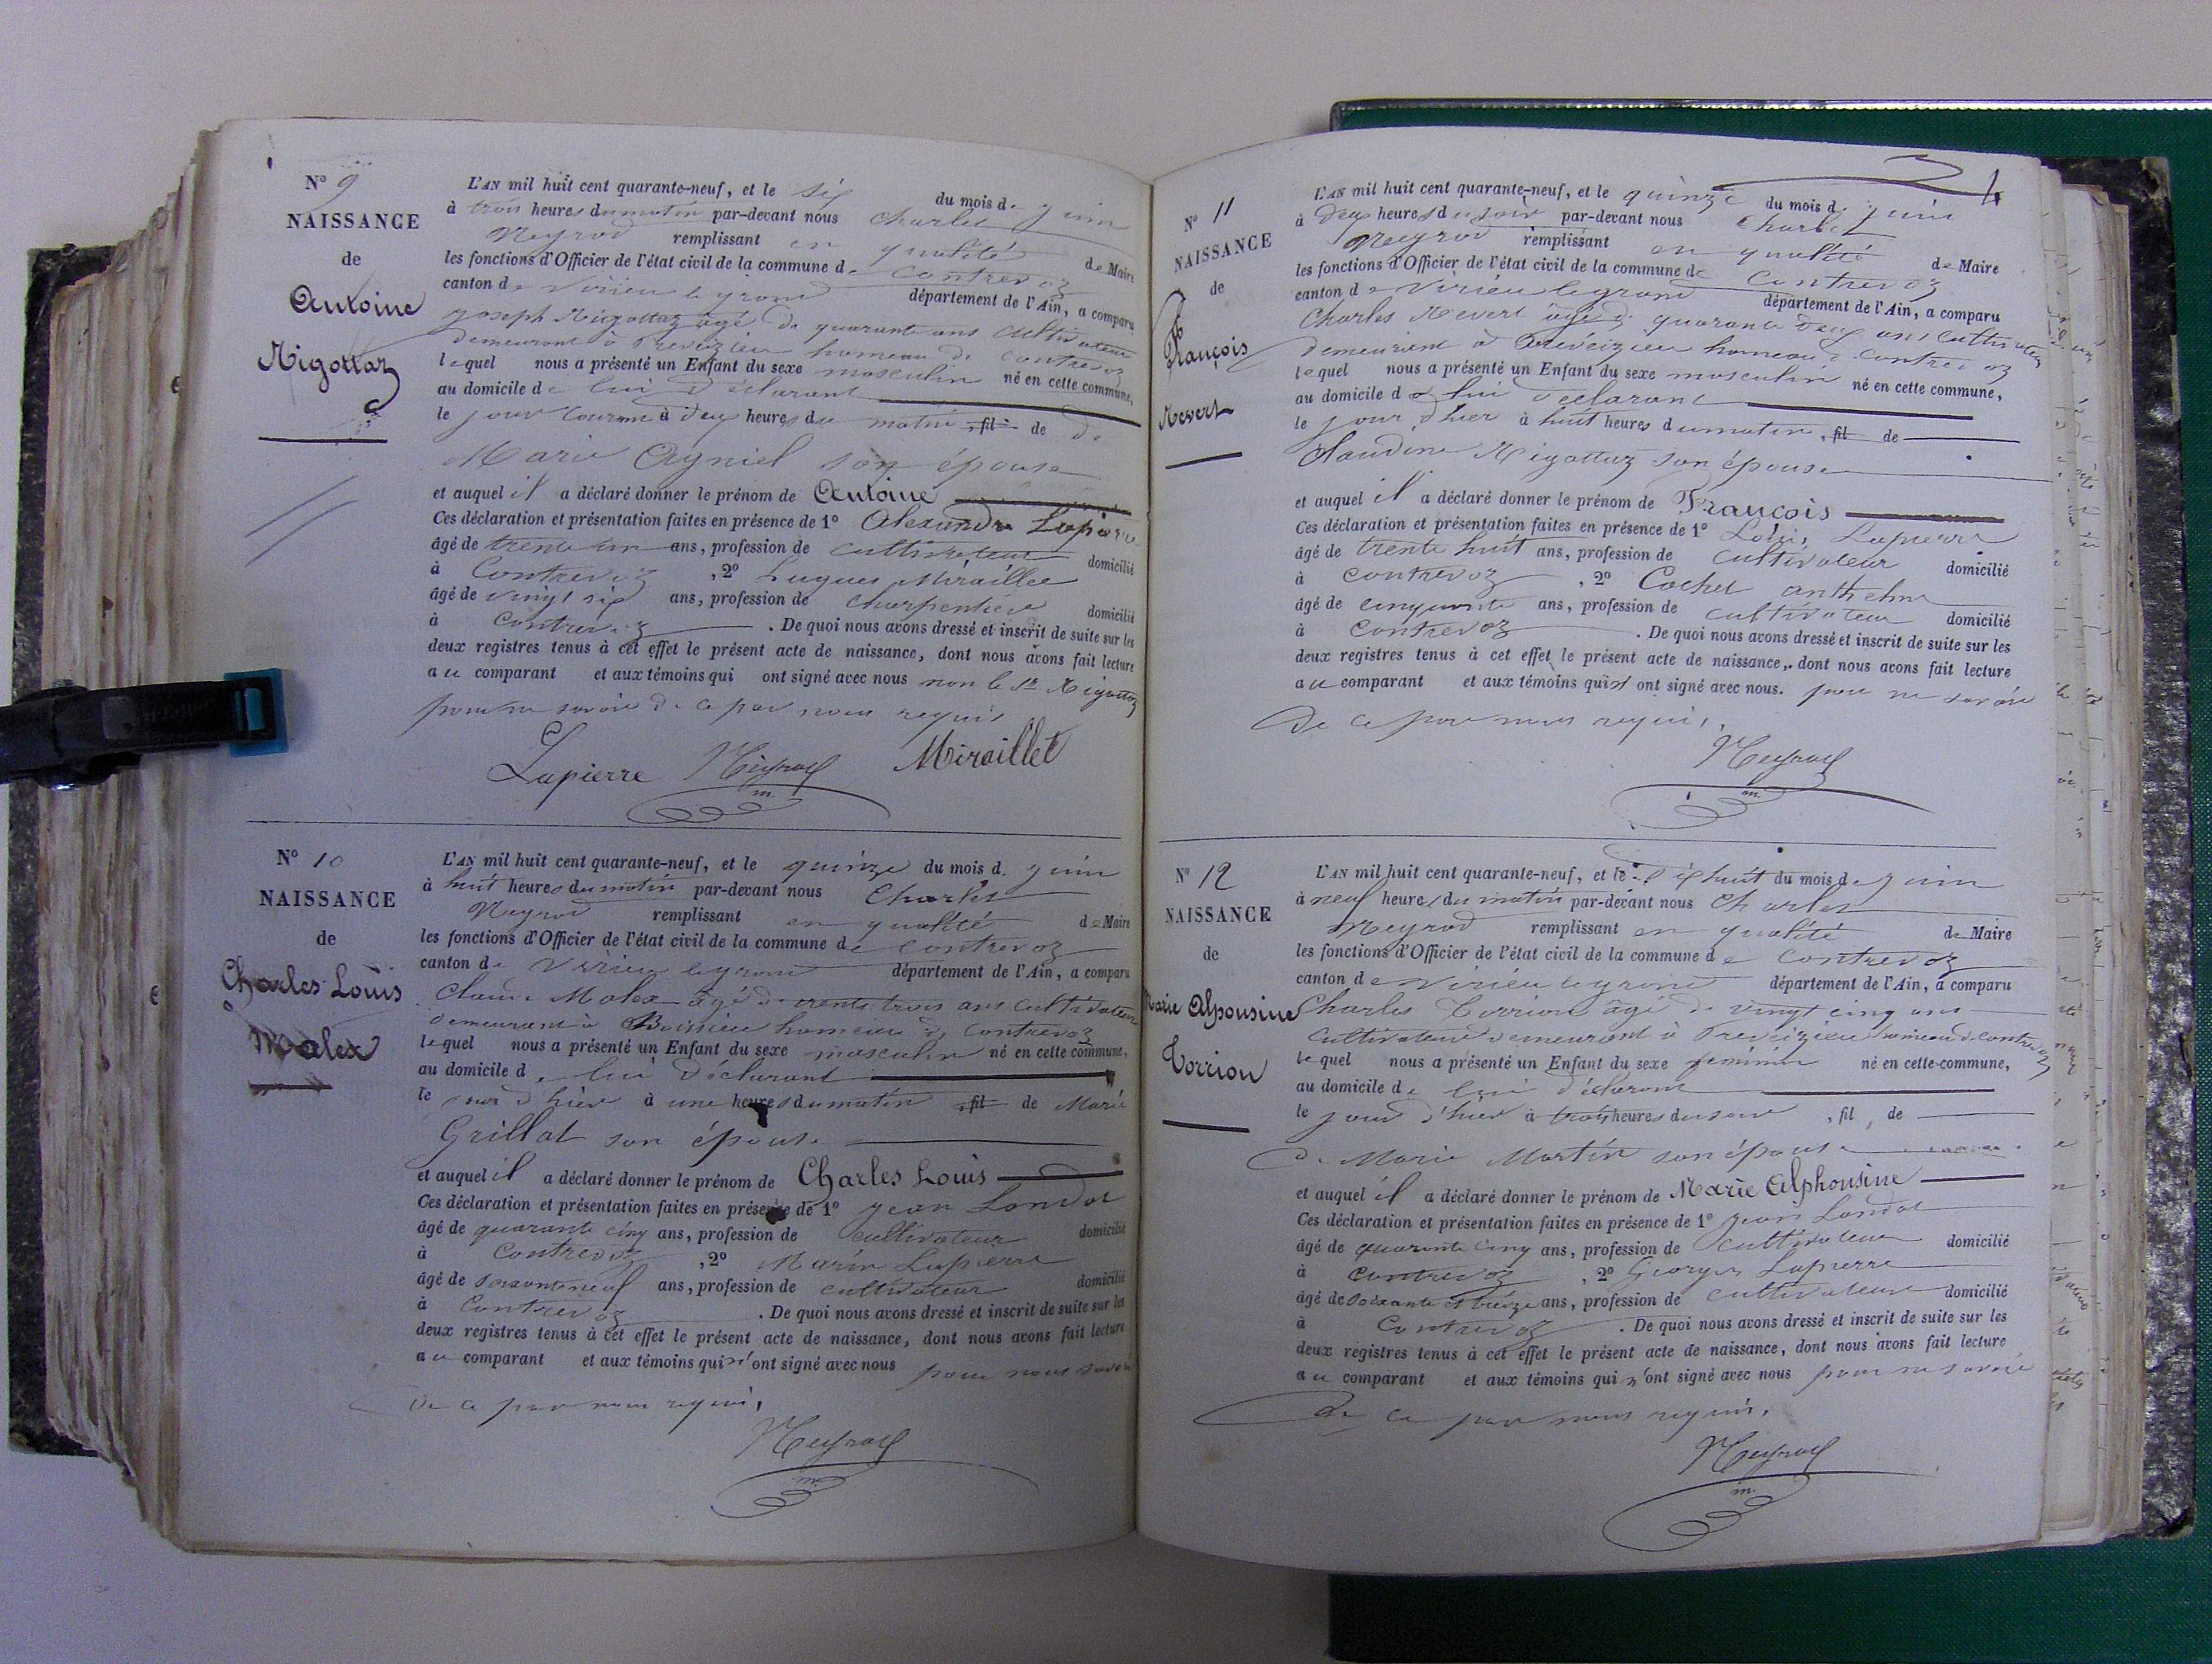 N° 9
NAISSANCE
de
Antoine
Rigottaz
L'AN mil huit cent quarante-neuf, et le six du mois de juin
à trois heures du matin par-devant nous Charles
Neyrod remplissant en qualité de Maire
les fonctions d'Officier de l'état civil de la commune de Contrevoz
canton de Virieu le grand département de l'Ain, a comparu
joseph Rigottaz âgé de quarante ans cultivateur
demeurant à Preveizieu hameau de Contrevoz
lequel nous a présenté un Enfant du sexe masculin né en cette commune,
au domicile de lui déclarant
le jour courant à deux heures du matin, fil de de
Marie Agniel son épouse
et auquel il a déclaré donner le prénom de Antoine
Ces déclaration et présentation faites en présence de 1° Alexandre Lapierre
âgé de trente un ans, profession de cultivateur domicilié
à Contrevoz, 2° hugues Miraillet
âgé de vingt six ans, profession de charpentier domicilié
à Contrevoz. De quoi nous avons dressé et inscrit de suite sur les
deux registres tenus à cet effet le présent acte de naissance, dont nous avons fait lecture
au comparant et aux témoins qui ont signé avec nous non le Sr Rigottaz
pour ne savoir de ce par nous requis
Lapierre Neyrod Miraillet
m.
N° 10
NAISSANCE
de
Charles Louis
Molex
L'AN mil huit cent quarante-neuf, et le quinze du mois d. juin
à huit heures du matin par-devant nous Charles
Neyrod remplissant en qualité de Maire
les fonctions d'Officier de l'état civil de la commune de Contrevoz
canton de Virieu legrand département de l'Ain, a comparu
Claude Molex âgé de trente trois ans cultivateur
demeurant à Boissieu hameau de Contrevoz
lequel nous a présenté un Enfant du sexe masculin né en cette commune,
au domicile de lui déclarant
le jour d'hier à une heures du matin, fil de Marie
Grillat son épouse
et auquel il a déclaré donner le prénom de Charles Louis
Ces déclaration et présentation faites en présence de 1° jean Londot
âgé de quarante cinq ans, profession de cultivateur domicilié
à Contrevoz, 2° Marin Lapierre
âgé de soixanteneuf ans, profession de cultivateur domicilié
à Contrevoz. De quoi nous avons dressé et inscrit de suite sur les
deux registres tenus à cet effet le présent acte de naissance, dont nous avons fait lecture
au comparant et aux témoins qui n'ont signé avec nous pour nous savoir
de ce par nous requis,
Neyrod
m.
N° 11
NAISSANCE
de
François
Revert
L'AN mil huit cent quarante-neuf, et le quinze du mois d. juin
à deux heures du soir par-devant nous Charles
Neyrod remplissant en qualité de Maire
les fonctions d'Officier de l'état civil de la commune de Contrevoz
canton de Virieu legrand département de l'Ain, a comparu
Charles Revert âgé de quarante deux ans cultivateur
demeurant à Preveizieu hameau de Contrevoz
lequel nous a présenté un Enfant du sexe masculin né en cette commune,
au domicile de lui déclarant
le jour d'hier à huit heures dumatin, fil de
Claudine Rigottaz son épouse
et auquel il a déclaré donner le prénom de François
Ces déclaration et présentation faites en présence de 1° Louis Lapierre
âgé de trente huit ans, profession de cultivateur domicilié
à Contrevoz, 2° Cochet anthelme
âgé de cinquante ans, profession de cultivateur domicilié
à Contrevoz. De quoi nous avons dressé et inscrit de suite sur les
deux registres tenus à cet effet le présent acte de naissance, dont nous avons fait lecture
au comparant et aux témoins qui n'ont signé avec nous. pour ne savoir
de ce par nous requis,
Neyrod
m.
N° 12
NAISSANCE
de
Marie Alponsine
Torrion
L'AN mil huit cent quarante-neuf, et le dixhuit du mois de juin
à neuf heures du matin par-devant nous Charles
Neyrod remplissant en qualité de Maire
les fonctions d'Officier de l'état civil de la commune de Contrevoz
canton de Virieu legrand département de l'Ain, a comparu
Charles Torrion âgé de vingt cinq ans
cultivateur demeurant à Preveizieu hameau de Contrevoz
lequel nous a présenté un Enfant du sexe feminin né en cette commune,
au domicile de lui déclarant
le jour d'hier à trois heures du soir, fil, de
de Marie Martin son épouse
et auquel il a déclaré donner le prénom de Marie Alphonsine
Ces déclaration et présentation faites en présence de 1° jean Londot
âgé de quarante cinq ans, profession de cultivateur domicilié
à Contrevoz, 2° Georges Lapierre
âgé de soixante et treize ans, profession de cultivateur domicilié
à Contrevoz. De quoi nous avons dressé et inscrit de suite sur les
deux registres tenus à cet effet le présent acte de naissance, dont nous avons fait lecture
au comparant et aux témoins qui n'ont signé avec nous pour ne savoir
de ce par nous requis,
Neyrod
m.